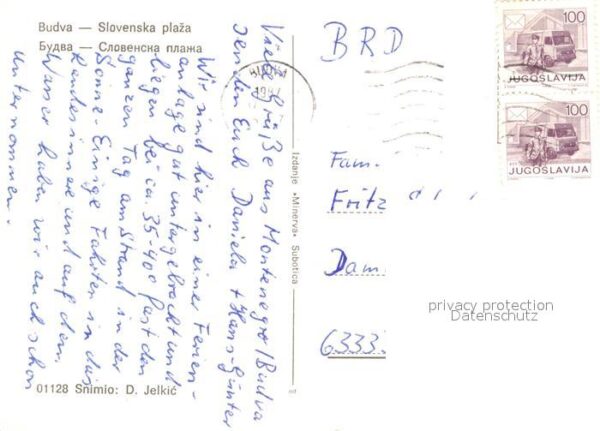 Budva — Slovenska plaža
Будва — Словенска плажа
Viele Grüße aus Montenegro/Budva
senden Euch Daniela + Hans-Günter
Wir sind hier in einer Ferien-
anlage gut untergebracht und
liegen bei ca. 35-40° fast den
ganzen Tag am Strand in der
Sonne. Einige Fahrten in das
Landesinnere und auf dem
Wasser haben wir auch schon
unternommen.
01128 Snimio: D. Jelkić
Izdanje »Minerva« Subotica
BRD
BUDVA
100
JUGOSLAVIJA
100
JUGOSLAVIJA
Fam.
Fritz
Dam
6333
privacy protection
Datenschutz